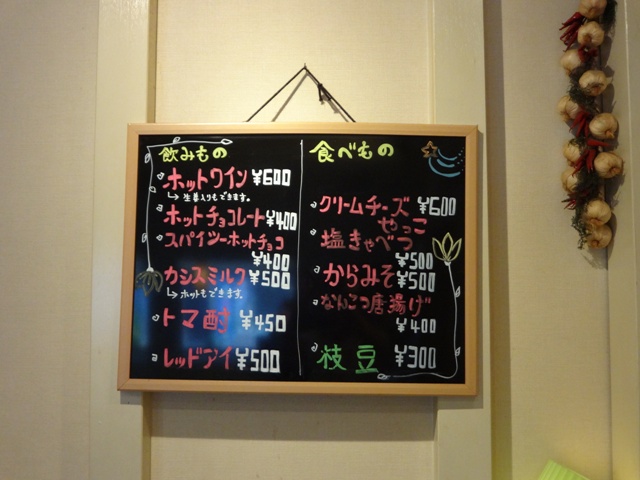 飲みもの
ホットワイン ¥600
↳生姜入りもできます。
ホットチョコレート ¥400
スパイシーホットチョコ
¥400
カシスミルク ¥500
↳ホットもできます。
トマ酎 ¥450
レッドアイ ¥500
食べもの
クリームチーズ ¥600
やっこ
塩きゃべつ
¥500
からみそ ¥500
なんこつ唐揚げ
¥400
枝豆 ¥300